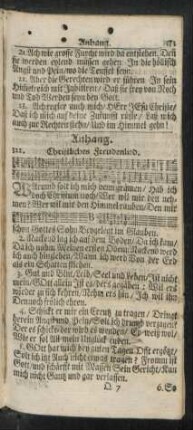 Anhang.
20. Ach wie grosse Furcht wird da entstehen,
müssen gehen In die höllisch
Angst und Pein, wo die Teufel seyn.
21. Aber die Gerechten wird er führen In sein
Himmelreich mit Jubiliren, Daß sie frey von Noth
und Tod Werden seyn bey Gott.
22. HErr JEsu Christe,
Daß ich mich auf deine Zukunft rüste, Laß mich
auch zur Rechten stehn, Und im Himmel gehn!
Anhang.
311. Christliches Freudenlied.
Warum solt ich mich denn grämen, Hab ich
doch Christum noch, Wer will mir den neh-
men? Wer will mir den Himmel rauben, Den mir
schon Gottes Sohn Beygelegt im Glauben.
2. Nackend lag ich auf dem Boden, Da ich kam,
Da ich nahm Meinen ersten Odem; Nackend werd
ich auch hinziehen, Wann ich werd Von der Erd
als ein Schatten fliehen.
3. Gut und Blut, Leib, Seel und Leben, Ist nicht
mein, GOtt allein Ist es, ders gegeben: Will ers
wieder zu sich kehren, Nehm ers hin, Ich will ihn
Dennoch frölich ehren.
4. Schickt er mir ein Creutz zu tragen, Dringt
herein Angst und Pein, Solt ich drum verzagen?
Der es schickt, der wird es wenden, Er weiß wol,
Wie er soll All mein Unglück enden.
5. GOtt hat mich bey guten Tagen Offt ergötzt,
Solt ich itzt Auch nicht etwas tragen? Fromm ist
Gott, und schärfft mit Massen Sein Gericht, Kan
mich nicht Gantz und gar verlassen.
6. Sa